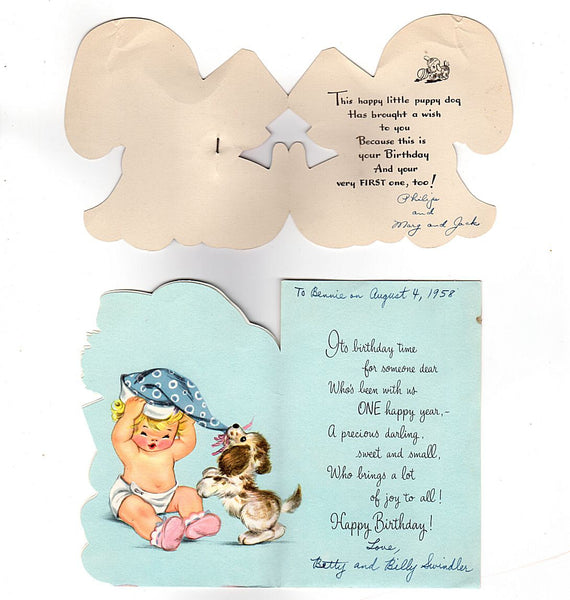 This happy little puppy dog
Has brought a wish
to you
Because this is
your Birthday
And your
very FIRST one, too!
Philip
and
Mary and Jack
To Bennie on August 4, 1958
It's birthday time
for someone dear
Who's been with us
ONE happy year,-
A precious darling,
sweet and small,
Who brings a lot
of joy to all!
Happy Birthday!
Love,
Betty and Billy Swindler